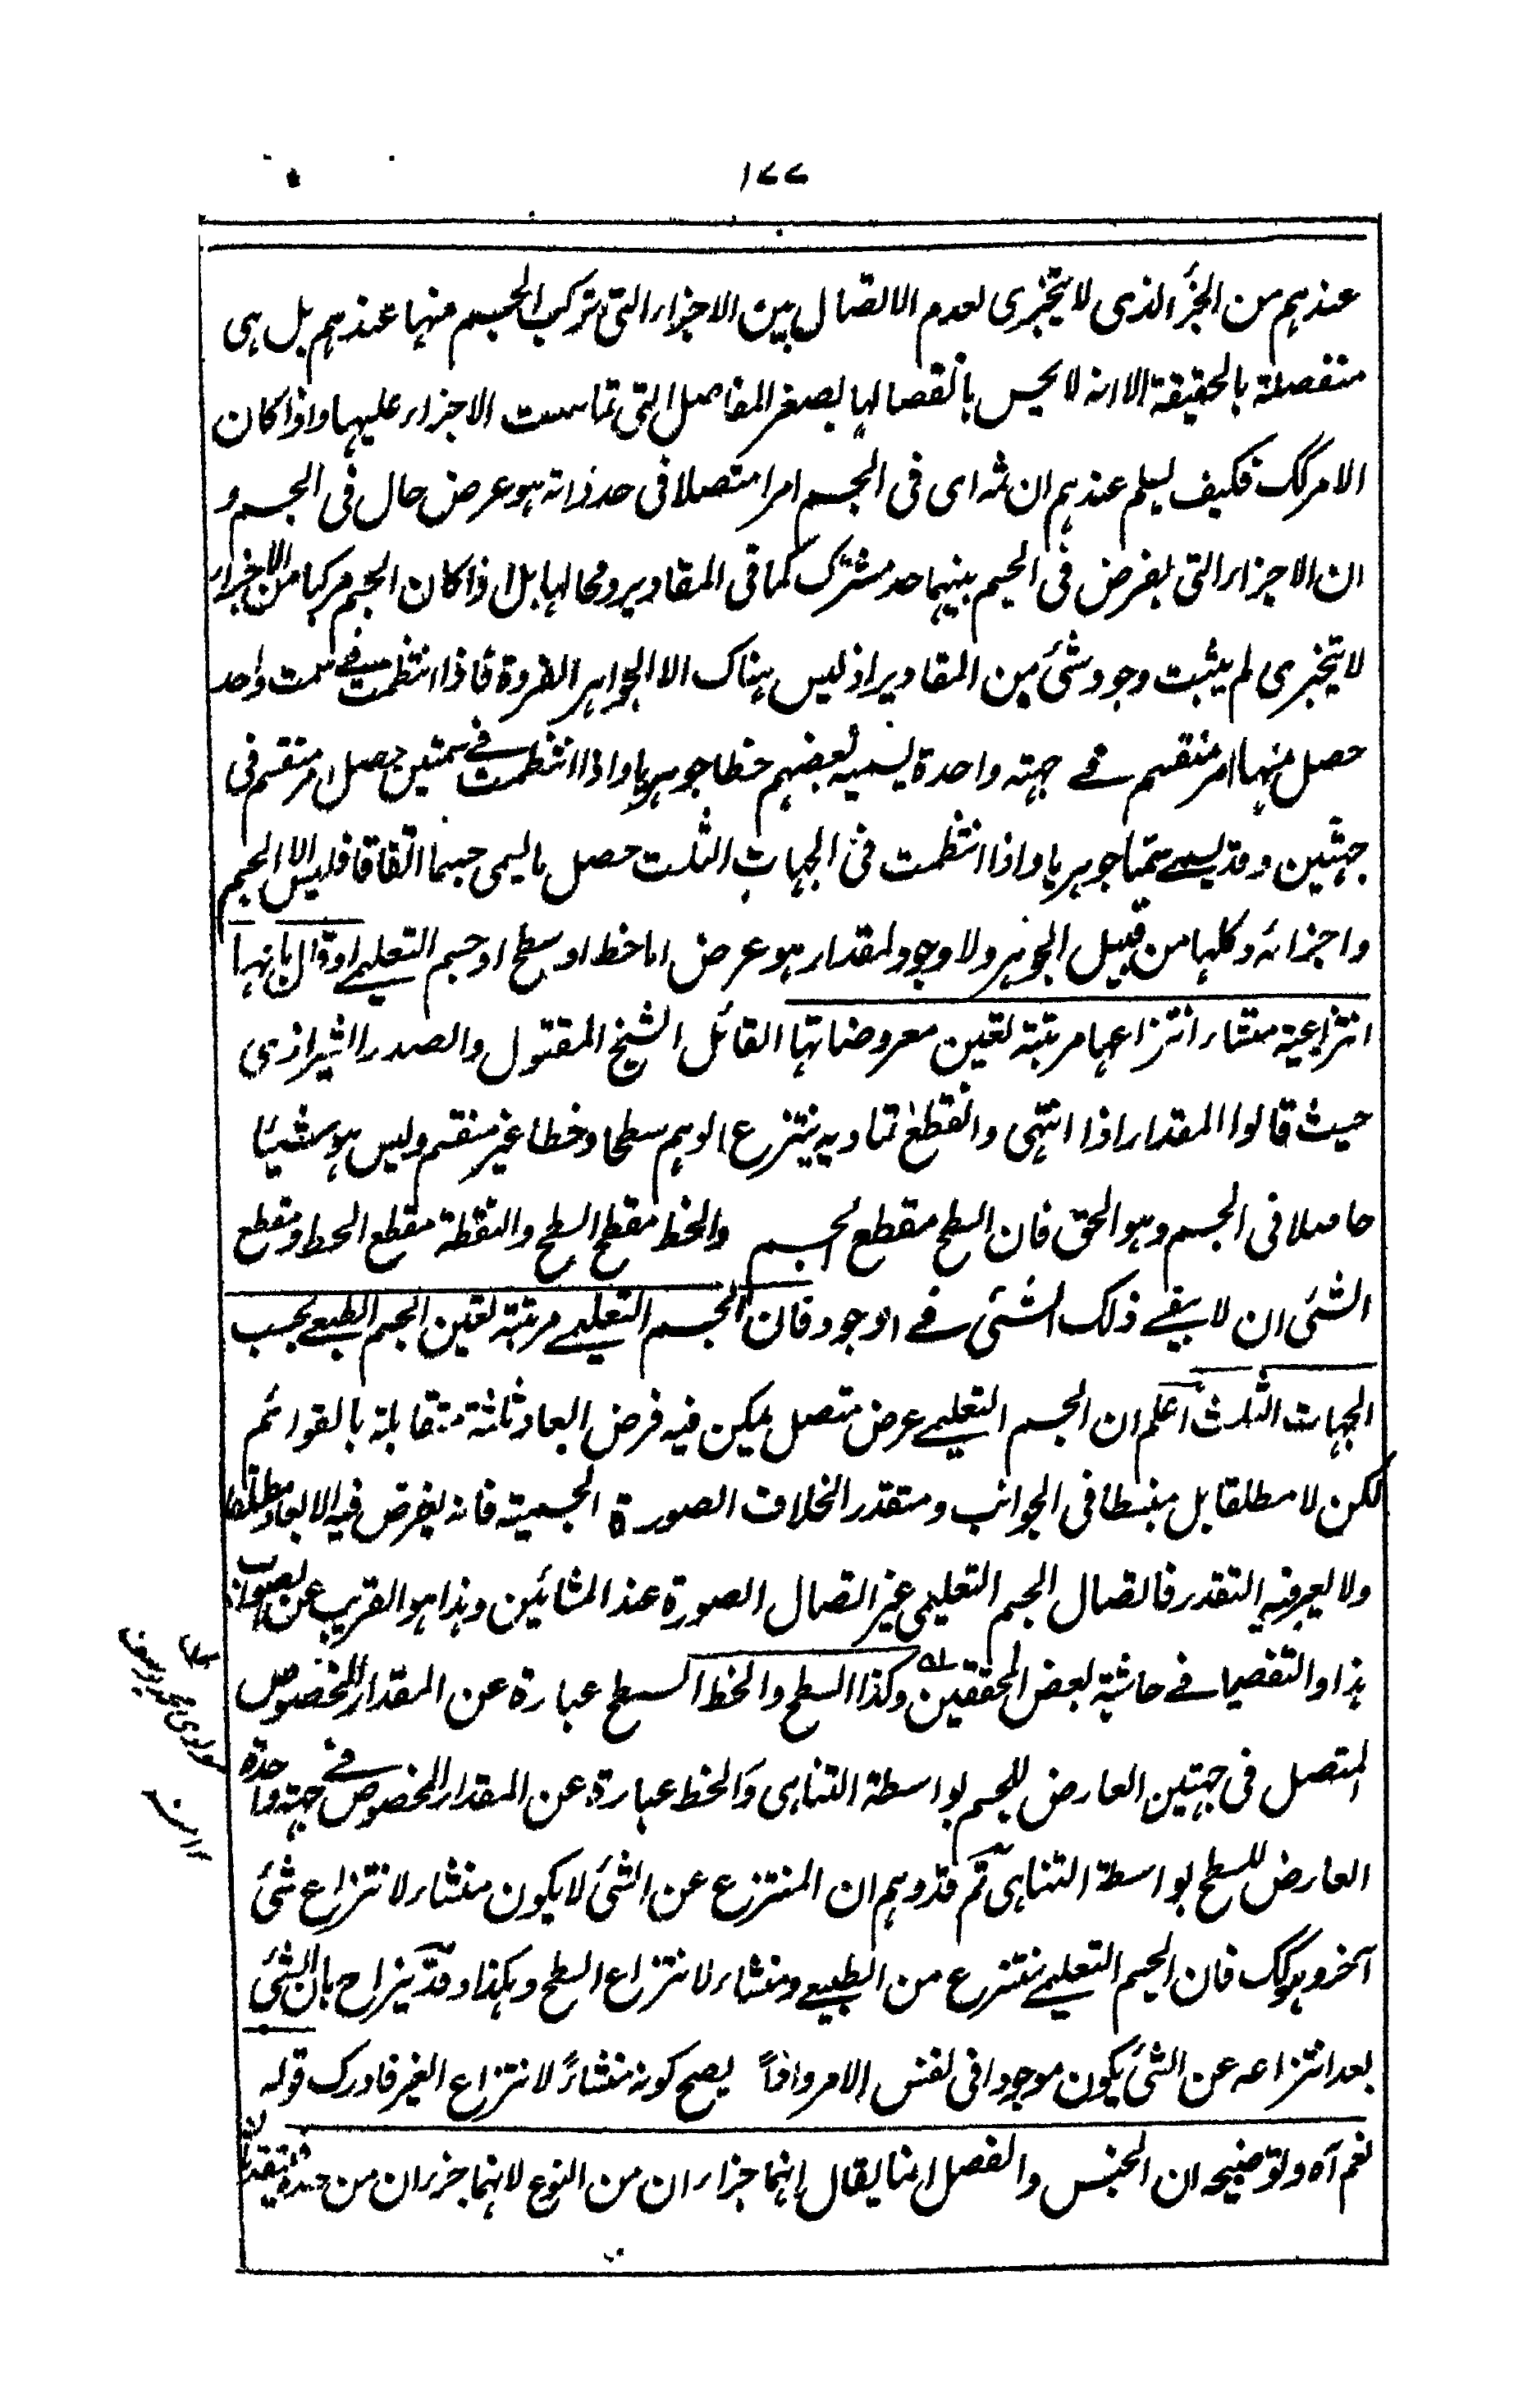 ١٧٧
عندهم من الجزء الذى لا يتجزى لعدم الاتصال بين الاجزاء التى تركب الجسم منها عندهم بل هى
منفصلة بالحقيقة الا انه لا يحس بانفصالها لصغر المفاصل التى تماست الاجزاء عليها واذا كان
الامر كك فكيف يسلم عندهم ان ثمه اى فى الجسم امرا متصلا فى حد ذاته هو عرض حال فى الجسم و
ان الاجزاء التى يفرض فى الجسم بينهما حد مشترك كما فى المقادير ومحالها بل اذا كان الجسم مركبا من الاجزاء
لا يتجزى لم يثبت وجود شئ من المقادير اذ ليس هناك الا الجواهر الفردة فاذا انتظمت فى سمت واحد
حصل منها امر منقسم فى جهته واحدة يسميه بعضهم خطا جوهريا واذا انتظمت فى سمتين حصل امر منقسم فى
جهتين وقد يسمى سطحا جوهريا واذا انتظمت فى الجهات الثلث حصل ما يسمى جسما اتفاقا فليس الا الجسم
واجزائه وكلها من قبيل الجوهر ولا وجود لمقدار هو عرض اما خط او سطح او جسم التعليمى او قال بانها
انتزاعية منشاء انتزاعها مرتبة تعين معروضاتها القائل الشيخ المقتول والصدر الشيرازى
حيث قالوا المقدار اذا انتهى وانقطع تماديه ينتزع الوهم سطحا وخطا غير منقسم وليس هو شيئا
حاصلا فى الجسم وهو الحق فان السطح مقطع الجسم والخط مقطع السطح والنقطة مقطع الخط ومقطع
الشئى ان لا يبقى ذلك الشئى فى الوجود فان الجسم التعليمى مرتبة تعين الجسم الطبعى بحسب
الجهات الثلث اعلم ان الجسم التعليمى عرض متصل يمكن فيه فرض ابعاد ثلثة متقابلة بالقوائم
لكن لا مطلقا بل منبسطا فى الجوانب ومتقدر الخلاف الصورة الجسمية فانه يفرض فيه الابعاد مطلقا
ولا يعرفيه التقدر فاتصال الجسم التعليمى غير اتصال الصورة عند المشائين وهذا هو القريب عن الصواب
هذا والتفصيل فى حاشية بعض المحققين وكذا السطح والخط السطح عبارة عن المقدار المخصوص
المتصل فى جهتين العارض للجسم بواسطة التناهى والخط عبارة عن المقدار المخصوص فى جهته واحدة
العارض للسطح بواسطة التناهى ثم قد وهم ان المنتزع عن الشئ لا يكون منشاء لانتزاع شئ
آخر وهو كك فان الجسم التعليمى منتزع من الطبيعى ومنشاء لانتزاع السطح وهكذا وقد يزاح بان الشئ
بعد انتزاعه عن الشئ يكون موجودا فى نفس الامر واقعاً يصح كونه منشاءً لانتزاع الغير فادرك قوله
نعم آه وتوضيحه ان الجنس والفصل انما يقال انهما جزاء ان من النوع لانهما جزء ان من حده